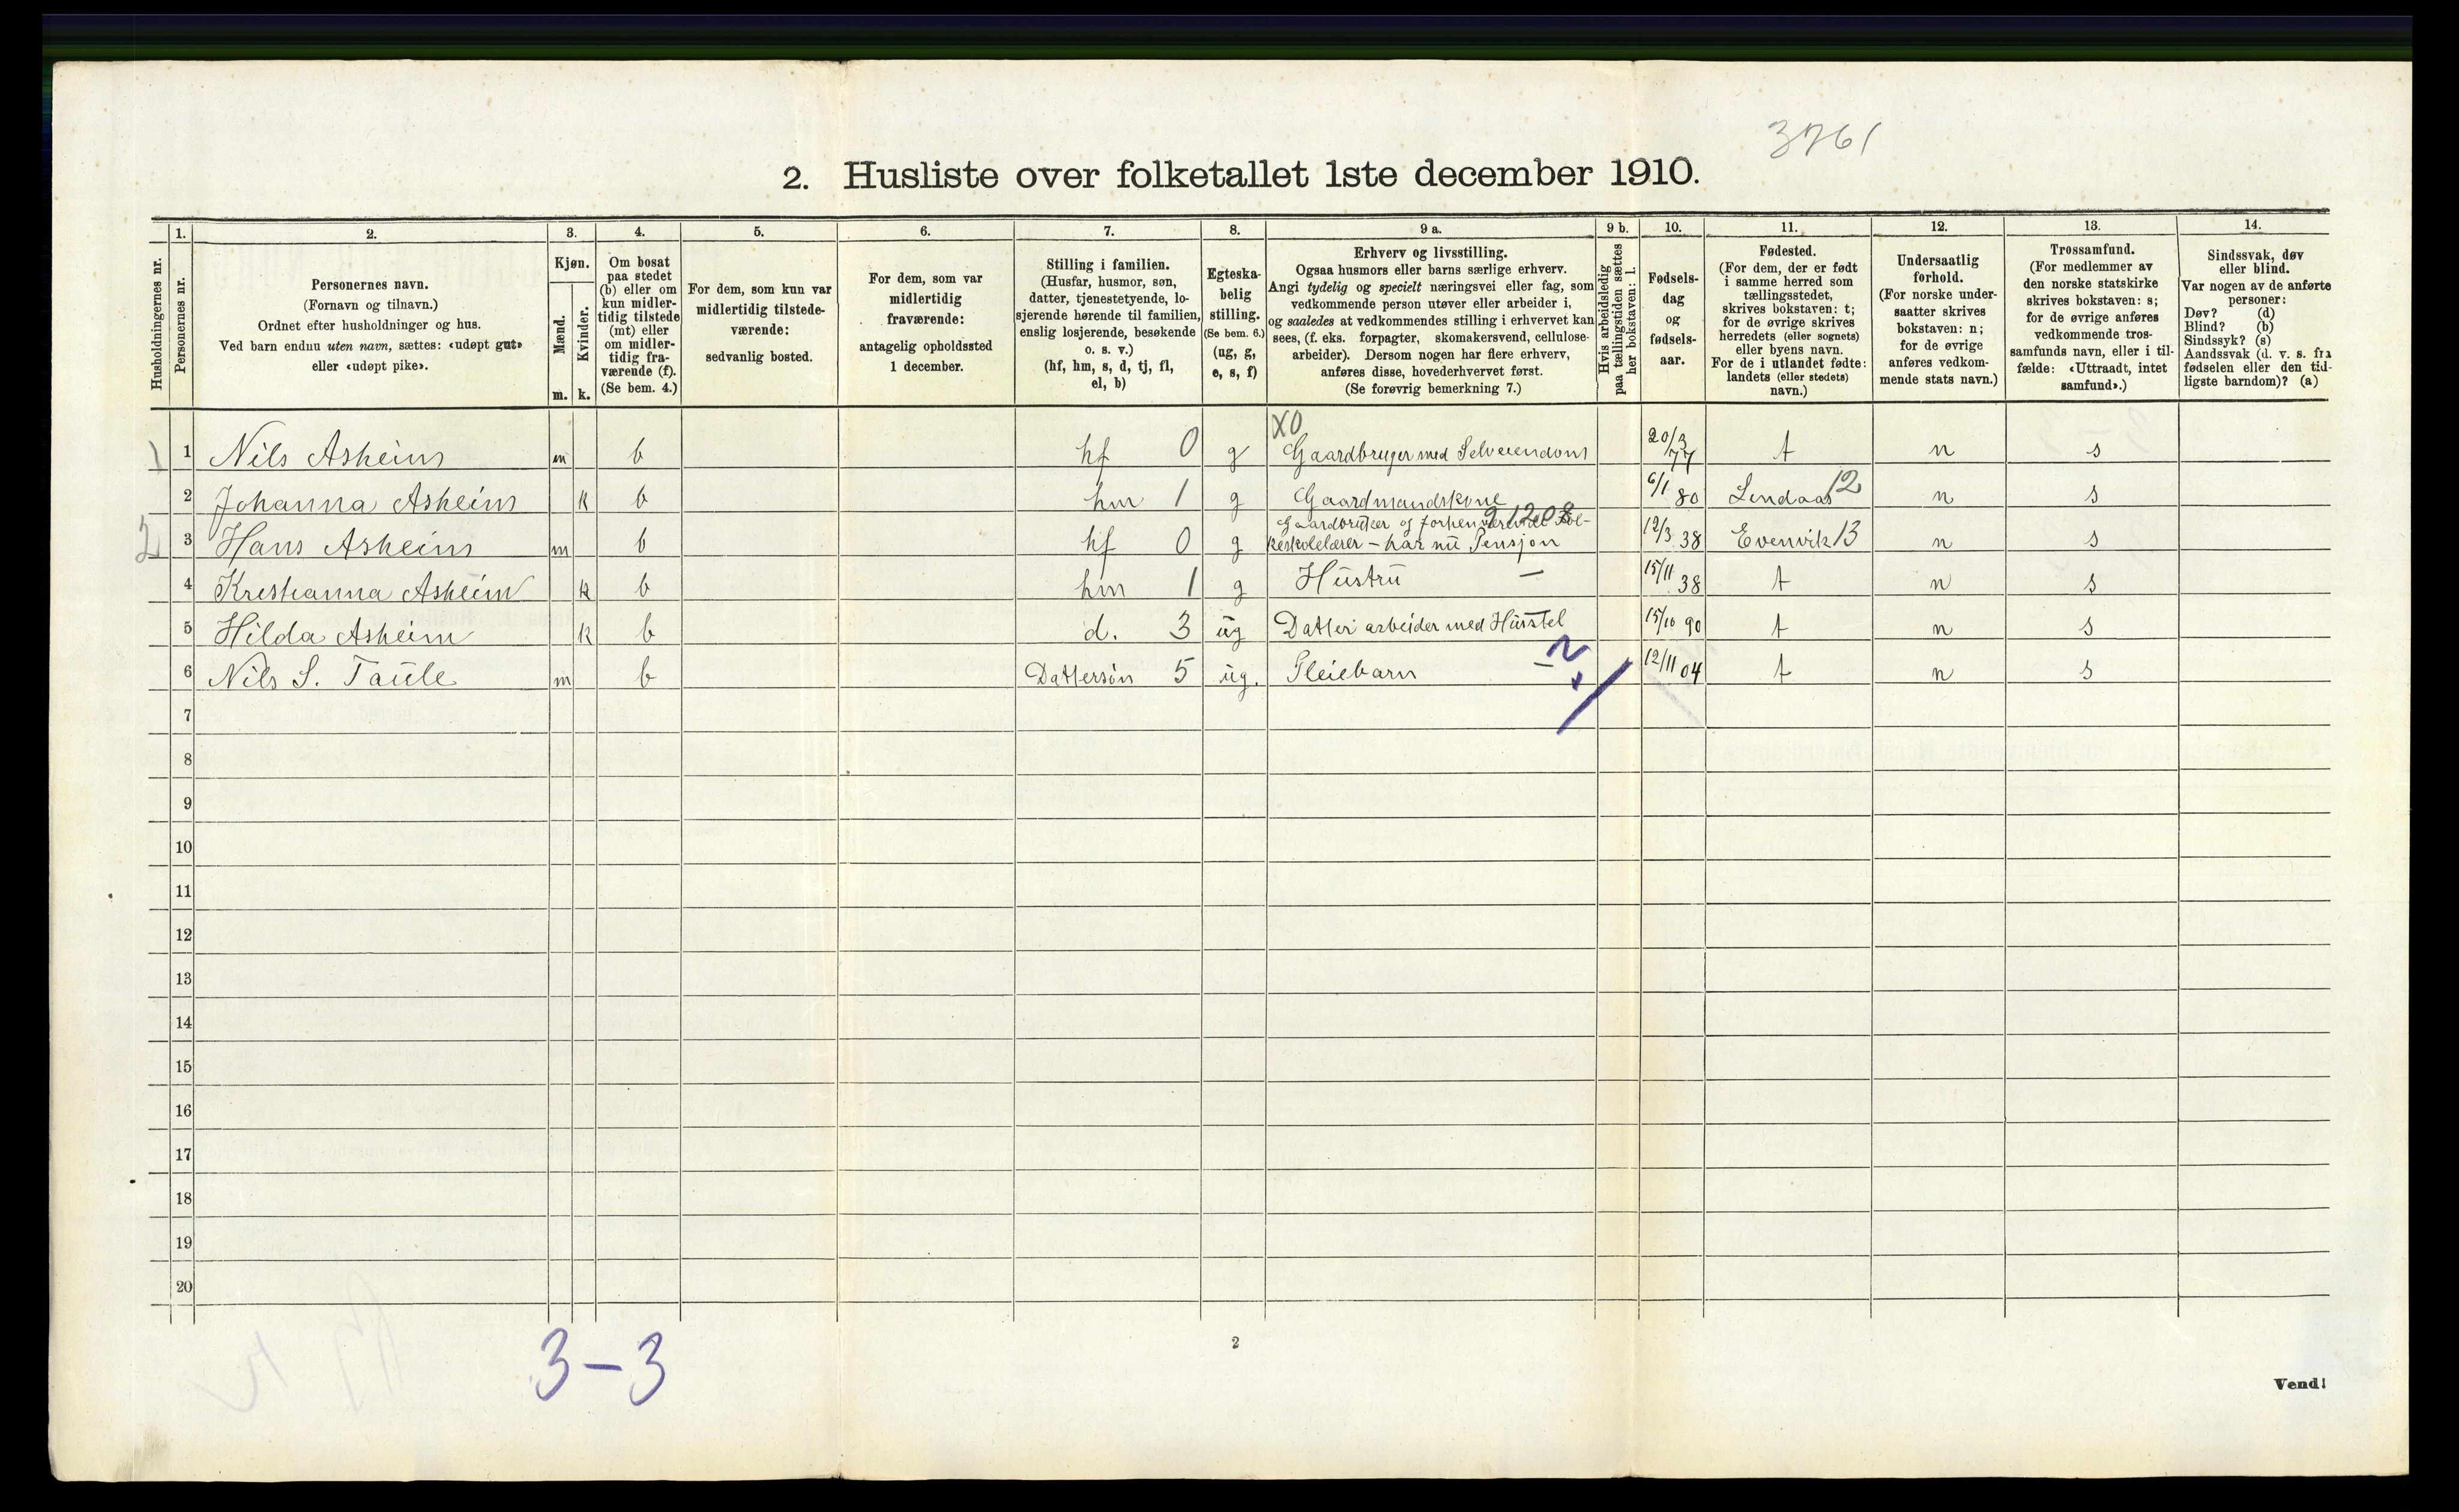 3761
2. Husliste over folketallet 1ste december 1910.
Husholdningernes nr.
1. Personernes nr.
2. Personernes navn.
(Fornavn og tilnavn.)
Ordnet efter husholdninger og hus.
Ved barn endnu uten navn, sættes: «udøpt gut»
eller «udøpt pike».
3. Kjøn.
Mænd. Kvinder.
m. k.
4. Om bosat
paa stedet
(b) eller om
kun midler-
tidig tilstede
(mt) eller
om midler-
tidig fra-
værende (f).
(Se bem. 4.)
5. For dem, som kun var
midlertidig tilstede-
værende:
sedvanlig bosted.
6. For dem, som var
midlertidig
fraværende:
antagelig opholdssted
1 december.
7. Stilling i familien.
(Husfar, husmor, søn,
datter, tjenestetyende, lo-
sjerende hørende til familien,
enslig losjerende, besøkende
o. s. v.)
(hf, hm, s, d, tj, fl,
el, b)
8. Egteska-
belig
stilling.
(Se bem. 6.)
(ug, g,
e, s, f)
9 a. Erhverv og livsstilling.
Ogsaa husmors eller barns særlige erhverv.
Angi tydelig og specielt næringsvei eller fag, som
vedkommende person utøver eller arbeider i,
og saaledes at vedkommendes stilling i erhvervet kan
sees, (f. eks. forpagter, skomakersvend, cellulose-
arbeider). Dersom nogen har flere erhverv,
anføres disse, hovederhvervet først.
(Se forøvrig bemerkning 7.)
9 b. Hvis arbeidsledig
paa tællingstiden sættes
her bokstaven: l.
10. Fødsels-
dag
og
fødsels-
aar.
11. Fødested.
(For dem, der er født
i samme herred som
tællingsstedet,
skrives bokstaven: t;
for de øvrige skrives
herredets (eller sognets)
eller byens navn.
For de i utlandet fødte:
landets (eller stedets)
navn.)
12. Undersaatlig
forhold.
(For norske under-
saatter skrives
bokstaven: n;
for de øvrige
anføres vedkom-
mende stats navn.)
13. Trossamfund.
(For medlemmer av
den norske statskirke
skrives bokstaven: s;
for de øvrige anføres
vedkommende tros-
samfunds navn, eller i til-
fælde: «Uttraadt, intet
samfund».)
14. Sindssvak, døv
eller blind.
Var nogen av de anførte
personer:
Døv? (d)
Blind? (b)
Sindssyk? (s)
Aandssvak (d. v. s. fra
fødselen eller den tid-
ligste barndom)? (a)
X0
1 1 Nils Asheim m b hf 0 g Gaardbruger med Selveiendom 20/3 77 t n s
2 Johanna Asheim k b hm 1 g Gaardmandskone 6/1 80 Lindaas 12 n s
2 3 Hans Asheim m b hf 0 g Gaardbruker og forhenværende Fol-
keskolelærer – har nu Pensjon 12/3 38 Evenvik 13 n s
4 Kristianna Asheim k b hm 1 g Hustru – 15/11 38 t n s
5 Hilda Asheim k b d. 3 ug Datter arbeider med Husstel 15/10 90 t n s
6 Nils S. Taule m b Dattersøn 5 ug. Pleiebarn – 12/11 04 t n s
7
8
9
10
11
12
13
14
15
16
17
18
19
20
3–3
2
Vend!